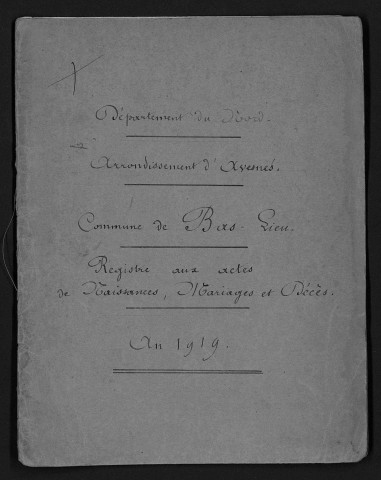 Département du Nord.
Arrondissement d'Avesnes.
Commune de Bas-Lieu.
Registre aux actes
de Naissances, Mariages et Décès.
An 1919.